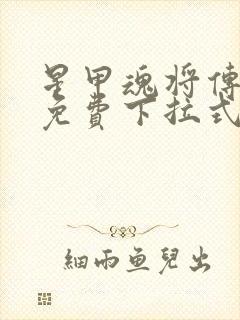 星甲魂将傳
免費下拉式
細雨魚兒出